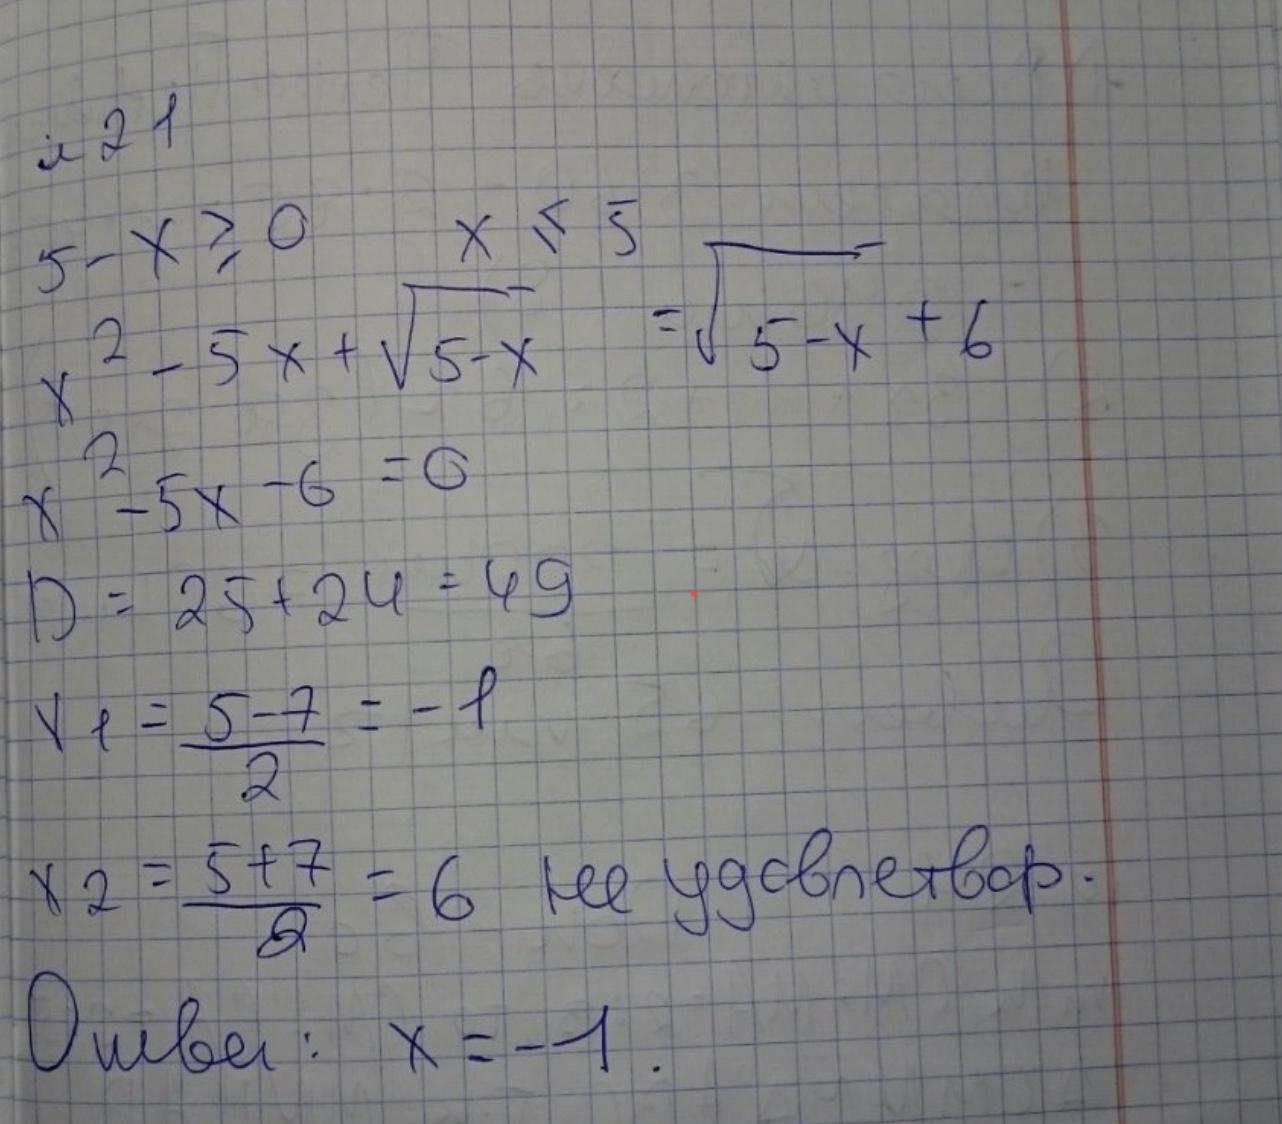 № 21
5 - x ≥ 0 x ≤ 5
x² - 5x + √(5-x) = √(5-x) + 6
x² - 5x - 6 = 0
D = 25 + 24 = 49
x1 = (5-7)/2 = -1
x2 = (5+7)/2 = 6 не удовлетвор.
Ответ: x = -1.